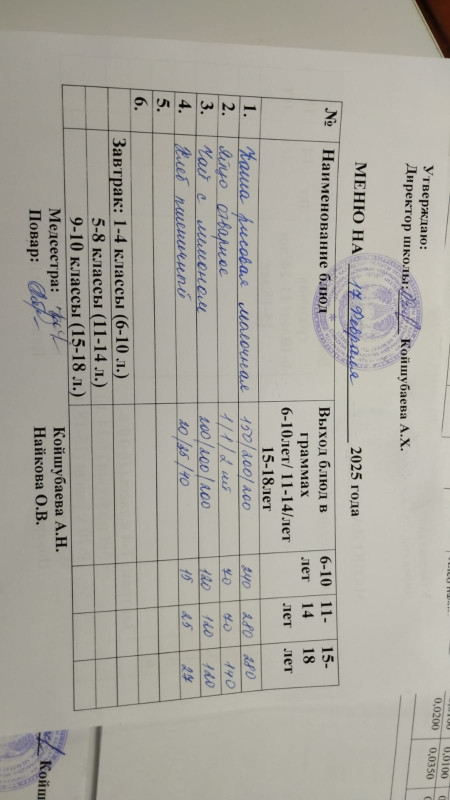 Утверждаю:
Директор школы: Койшубаева А.Х.
МЕНЮ НА 17 февраля 2025 года
№ Наименование блюд Выход блюд в граммах 6-10лет/ 11-14/лет 15-18лет 6-10 лет 11-14 лет 15-18 лет
1. Каша рисовая молочная 150/200/200 240 280 280
2. Яйцо отварное 1/1/2 шт 70 70 140
3. Чай с лимоном 200/200/200 120 120 120
4. Хлеб пшеничный 20/35/40 15 25 27
5.
6.
Завтрак: 1-4 классы (6-10 л.)
5-8 классы (11-14 л.)
9-10 классы (15-18 л.)
Медсестра: Койшубаева А.Н.
Повар: Найкова О.В.
0,0100
0,0200
0,0350
Койш